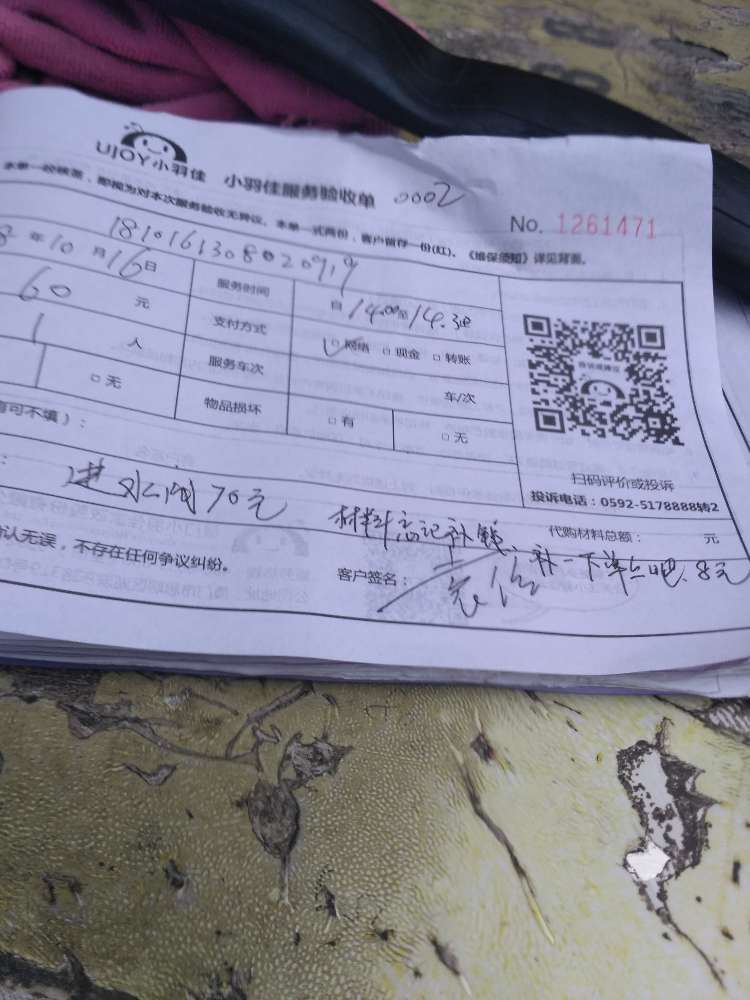 UJOY小羽佳 小羽佳服务验收单 0002
No. 1261471
本单一经核签，即视为对本次服务验收无异议。本单一式两份，客户留存一份(红)。《维保须知》详见背面。
1810161308020919
8 年 10 月 16 日 服务时间 自 14.00 至 14.30
60 元 支付方式 □ 网络 □ 现金 □ 转账
1 人 服务车次 车/次
□ 无 物品损坏 □ 有 □ 无
扫码评价或投诉
投诉电话：0592-5178888转2
可不填）：
进水阀70元
材料忘记补钱、补一下单上吧、8元
代购材料总额： 元
认无误，不存在任何争议纠纷。
客户签名：